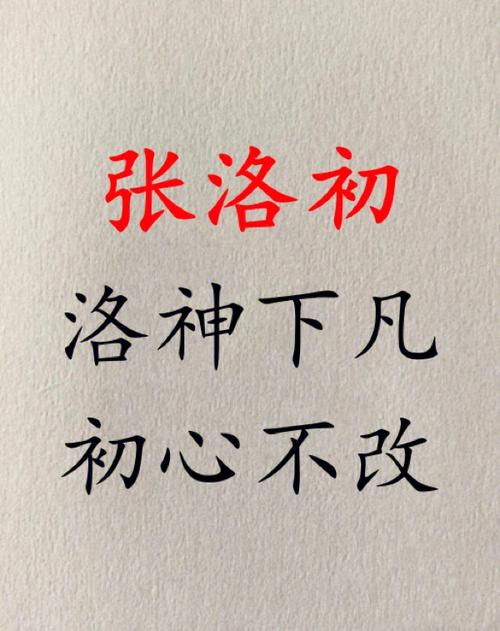 张洛初
洛神下凡
初心不改